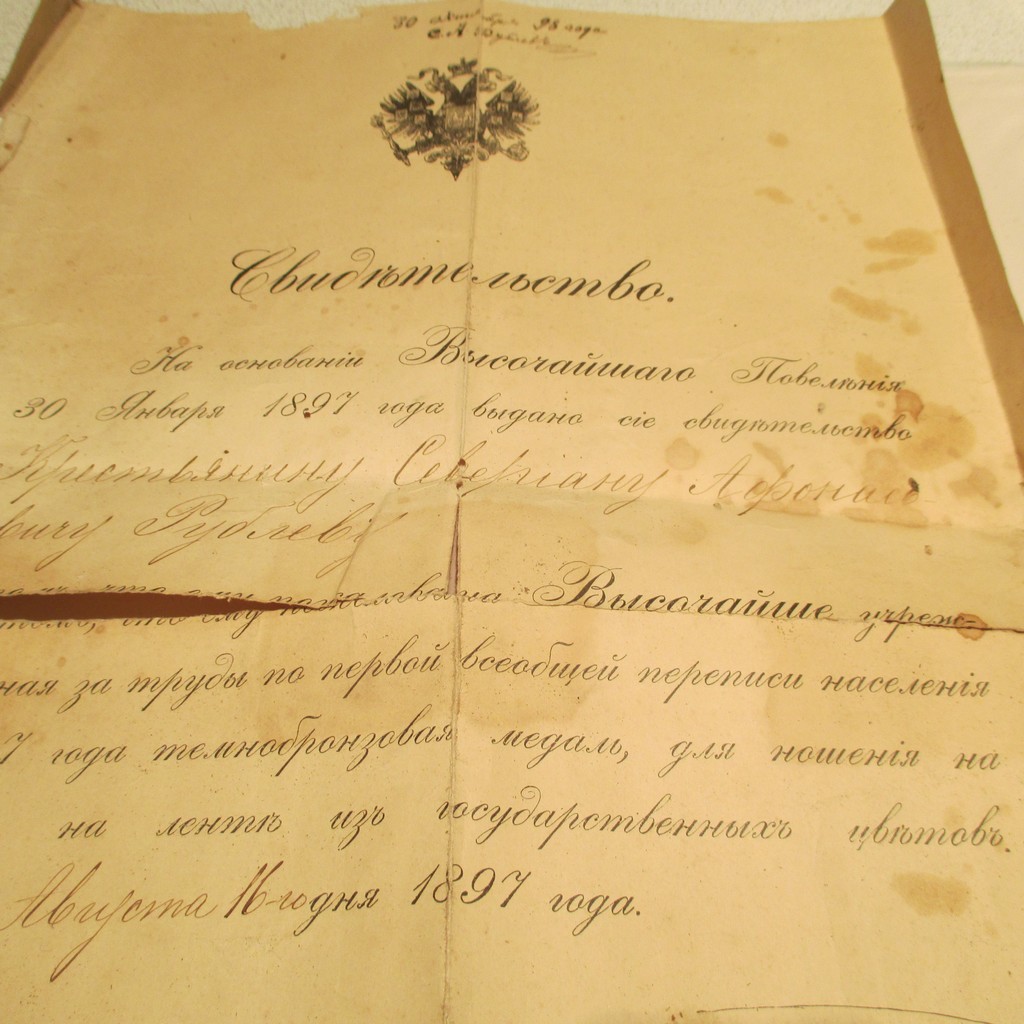 30 октября 98 года
С. А. Рублевъ
Свидѣтельство.
На основаніи Высочайшаго Повелѣнія
30 Января 1897 года выдано сіе свидѣтельство
Крестьянину Северіану Афонась-
вичу Рублеву
что ему пожалована Высочайше учреж-
ная за труды по первой всеобщей переписи населенія
7 года темнобронзовая медаль, для ношенія на
на лентѣ изъ государственныхъ цвѣтовъ.
Августа 16-го дня 1897 года.